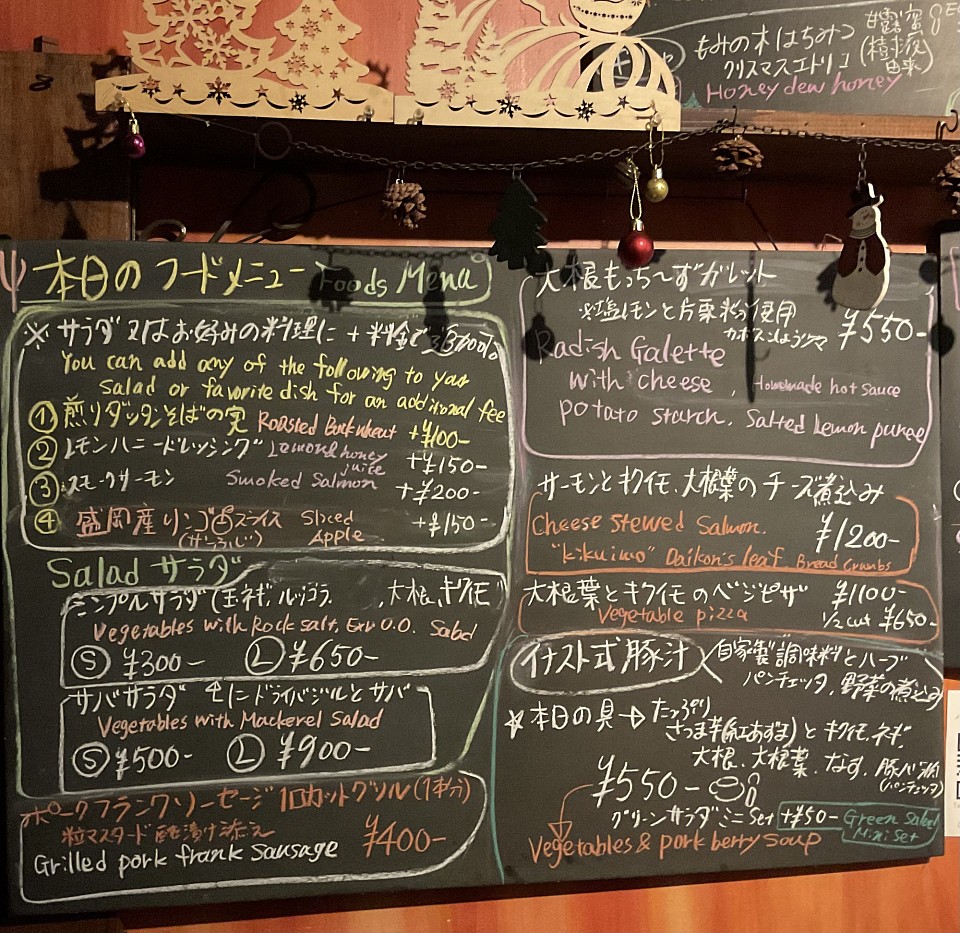 もみの木はちみつ
甘露蜜
クリスマスエトリコ
(樹液由来)
Honey dew honey
本日のフードメニュー Foods Menu
※ サラダ又はお好みの料理に + 料金で
You can add any of the following to your
Salad or favorite dish for an additional fee
① 煎りダッタンそばの実 Roasted Buckwheat +¥100-
② レモンハニードレッシング Lemon & honey juice +¥150-
③ スモークサーモン Smoked Salmon +¥200-
④ 盛岡産リンゴ スライス Sliced Apple +¥150-
Salad サラダ
シンプルサラダ (玉ネギ, ルッコラ, 大根, キクイモ
Vegetables with Rock salt, Exv O.O. Salad
Ⓢ ¥300- Ⓛ ¥650-
サバサラダ ドライバジルとサバ
Vegetables with Mackerel Salad
Ⓢ ¥500- Ⓛ ¥900-
ポークフランクソーセージ 10カットグリル (1本分)
粒マスタード 酢漬け添え ¥400-
Grilled pork frank sausage
大根もっち〜ずガレット
※塩レモンと片栗粉使用
¥550-
Radish Galette
with cheese, Homemade hot sauce
potato starch, Salted Lemon puree
サーモンとキクイモ、大根葉のチーズ煮込み
Cheese stewed Salmon. ¥1200-
"kikuimo" Daikon's leaf, Bread Crumbs
大根葉とキクイモのベジピザ ¥1100-
Vegetable pizza 1/2 cut ¥650-
イナスト式豚汁 自家製調味料とハーブ
パンチェッタ, 野菜の煮込み
☆本日の具→たっぷり
さつま芋(紅あずま)とキクイモ、ネギ,
大根、大根葉、なす、豚バラ
(パンチェッタ)
¥550-
グリーンサラダミニSet +¥50- Green Salad Mini Set
Vegetables & pork berry soup